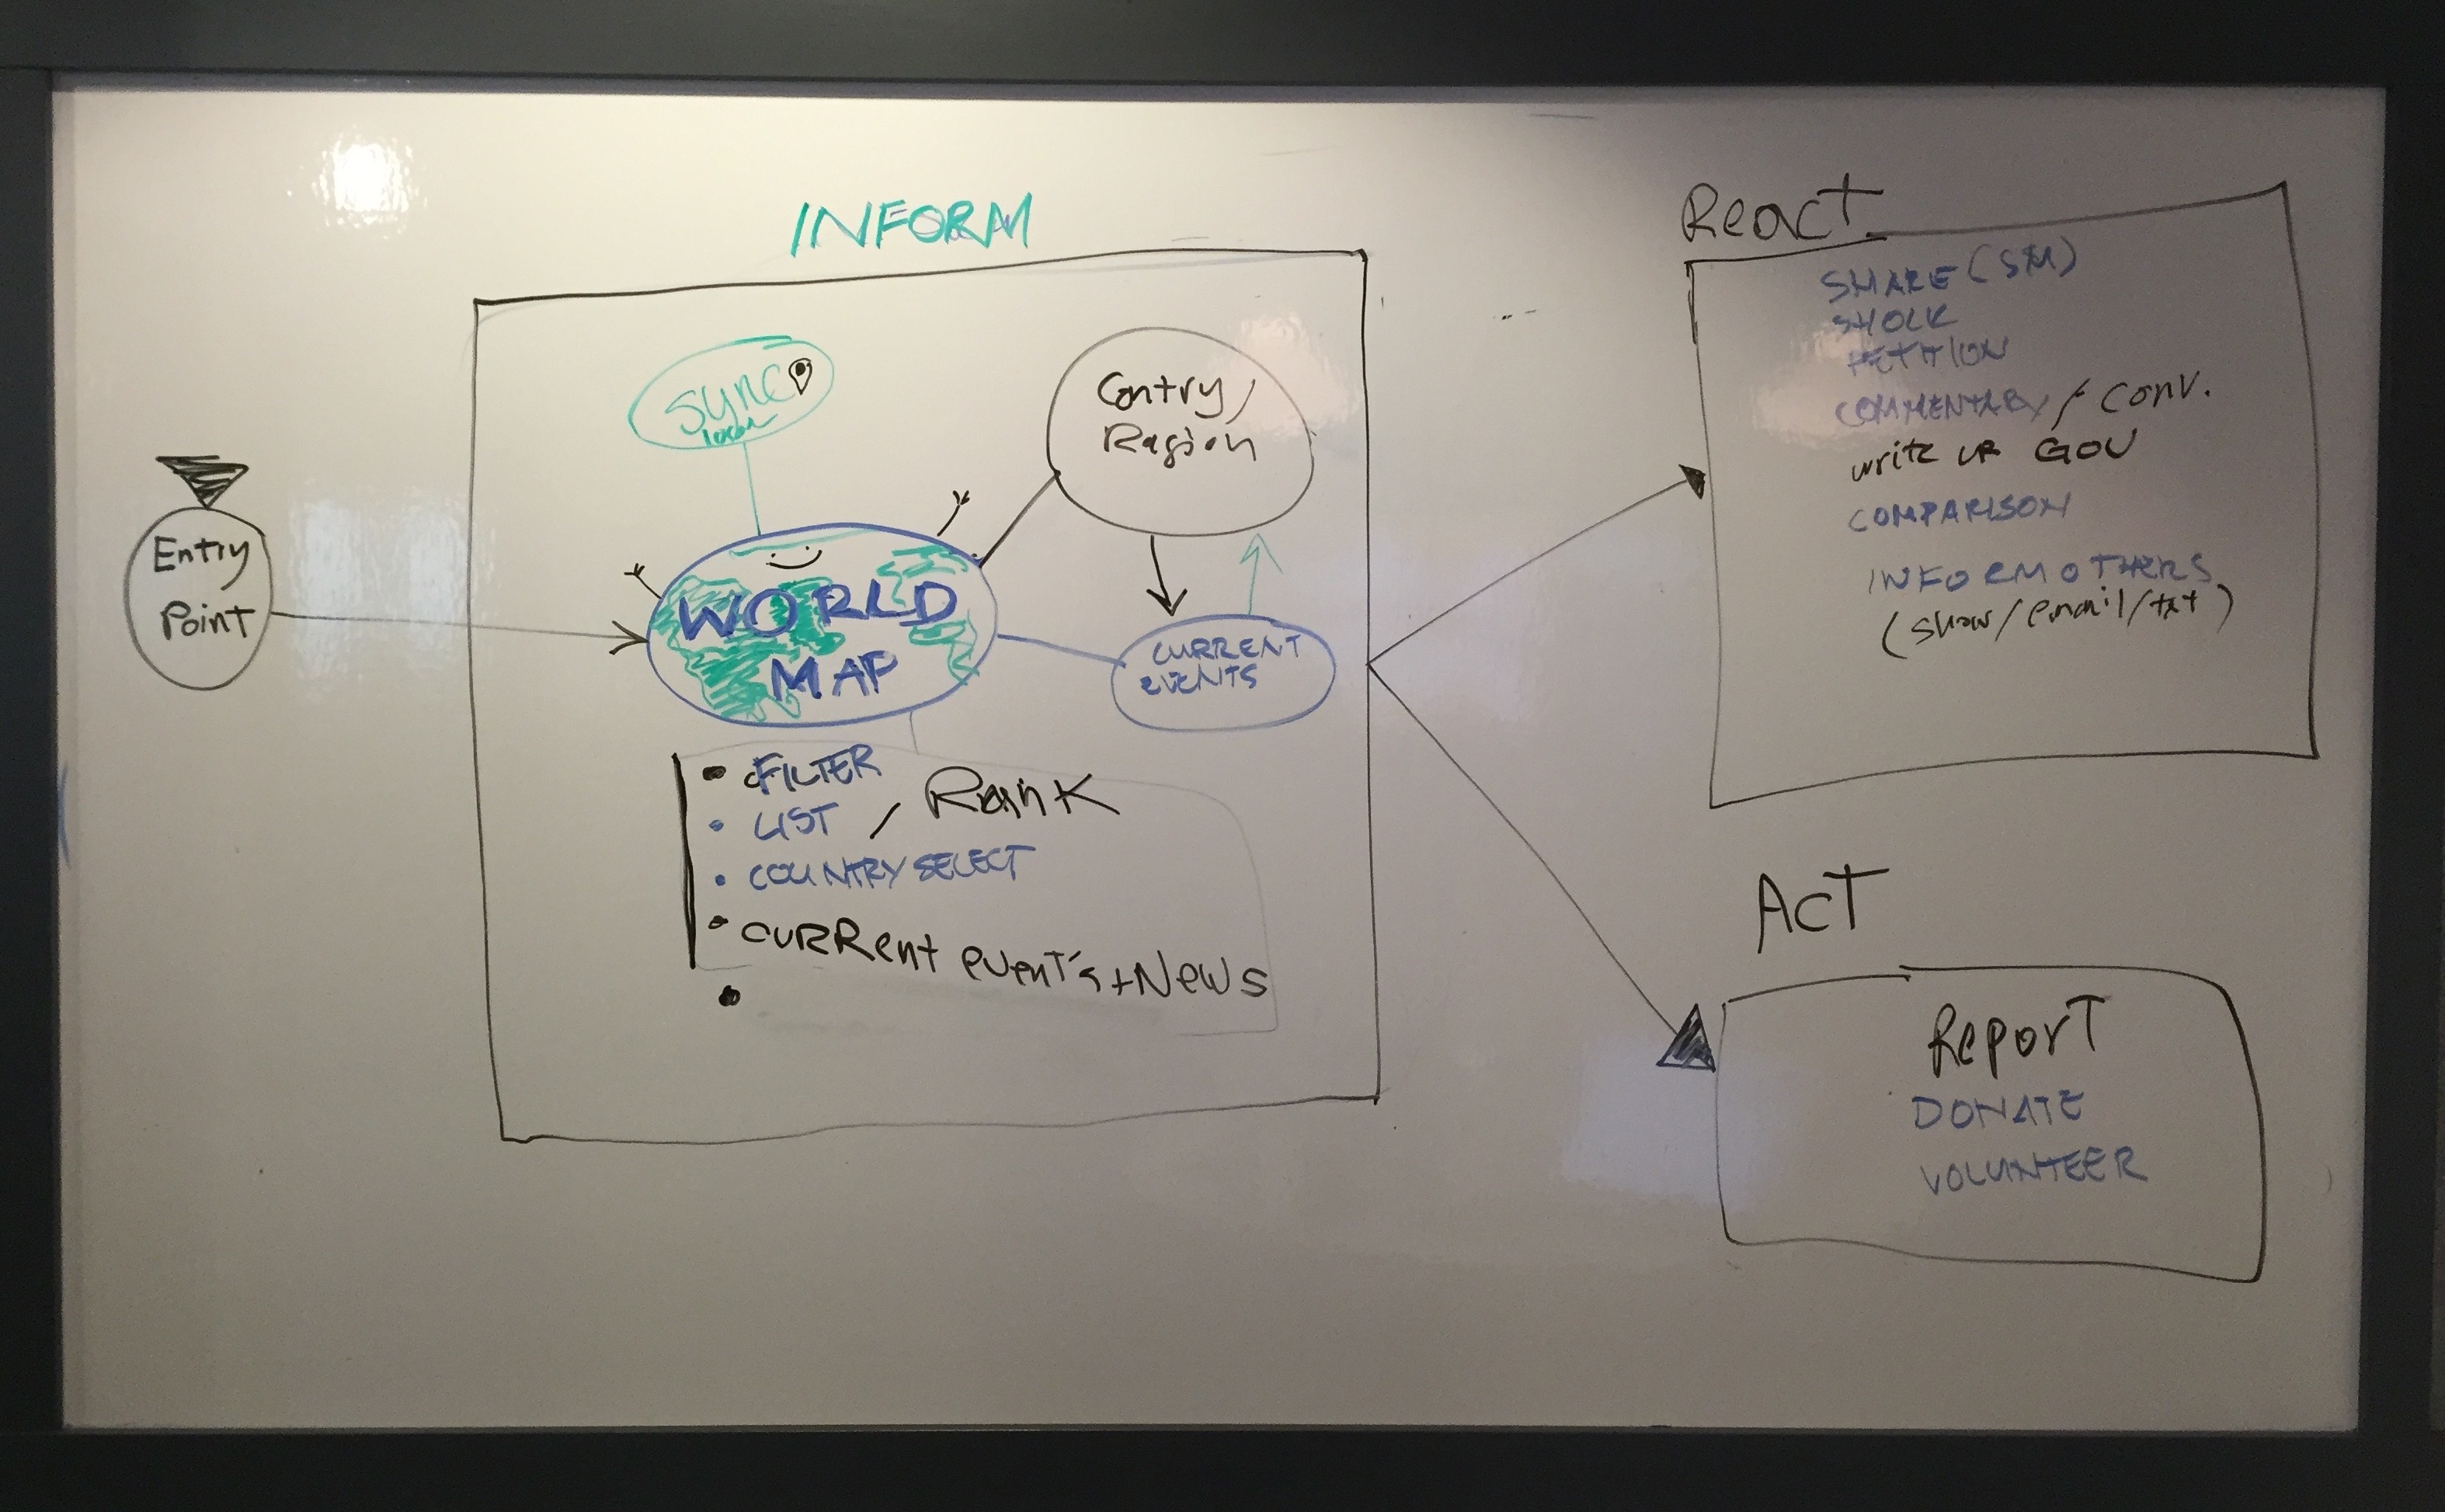 INFORM
SYNC
Entry
Point
Contry/
Region
WORLD
MAP
CURRENT
EVENTS
• FILTER
• LIST / Rank
• COUNTRY SELECT
• CURRent event's + News
•
React
SHARE (SM)
SHOCK
PETITION
COMMENTARY / Conv.
write UR GOV
COMPARISON
INFORM OTHERS
(show/email/txt)
ACT
Report
DONATE
VOLUNTEER